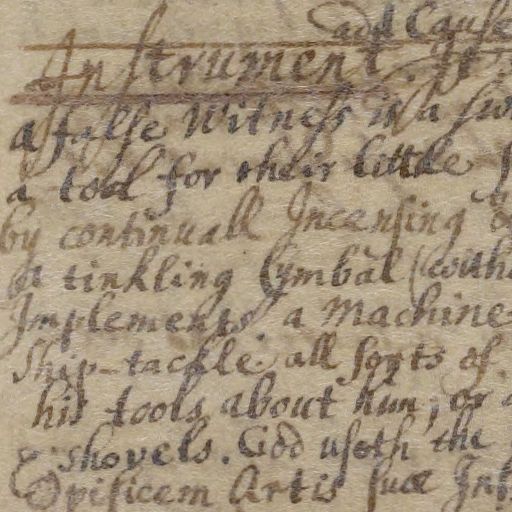 add Cause
Instrument. It.
a false Witness is a
a tool for their little
by continuall Incensing
a tinkling Cymbal (with
Implements. a Machine
Ship-tackle. all sorts of
his tools about him, or
& shovels. God useth the
Opificem Artis suæ